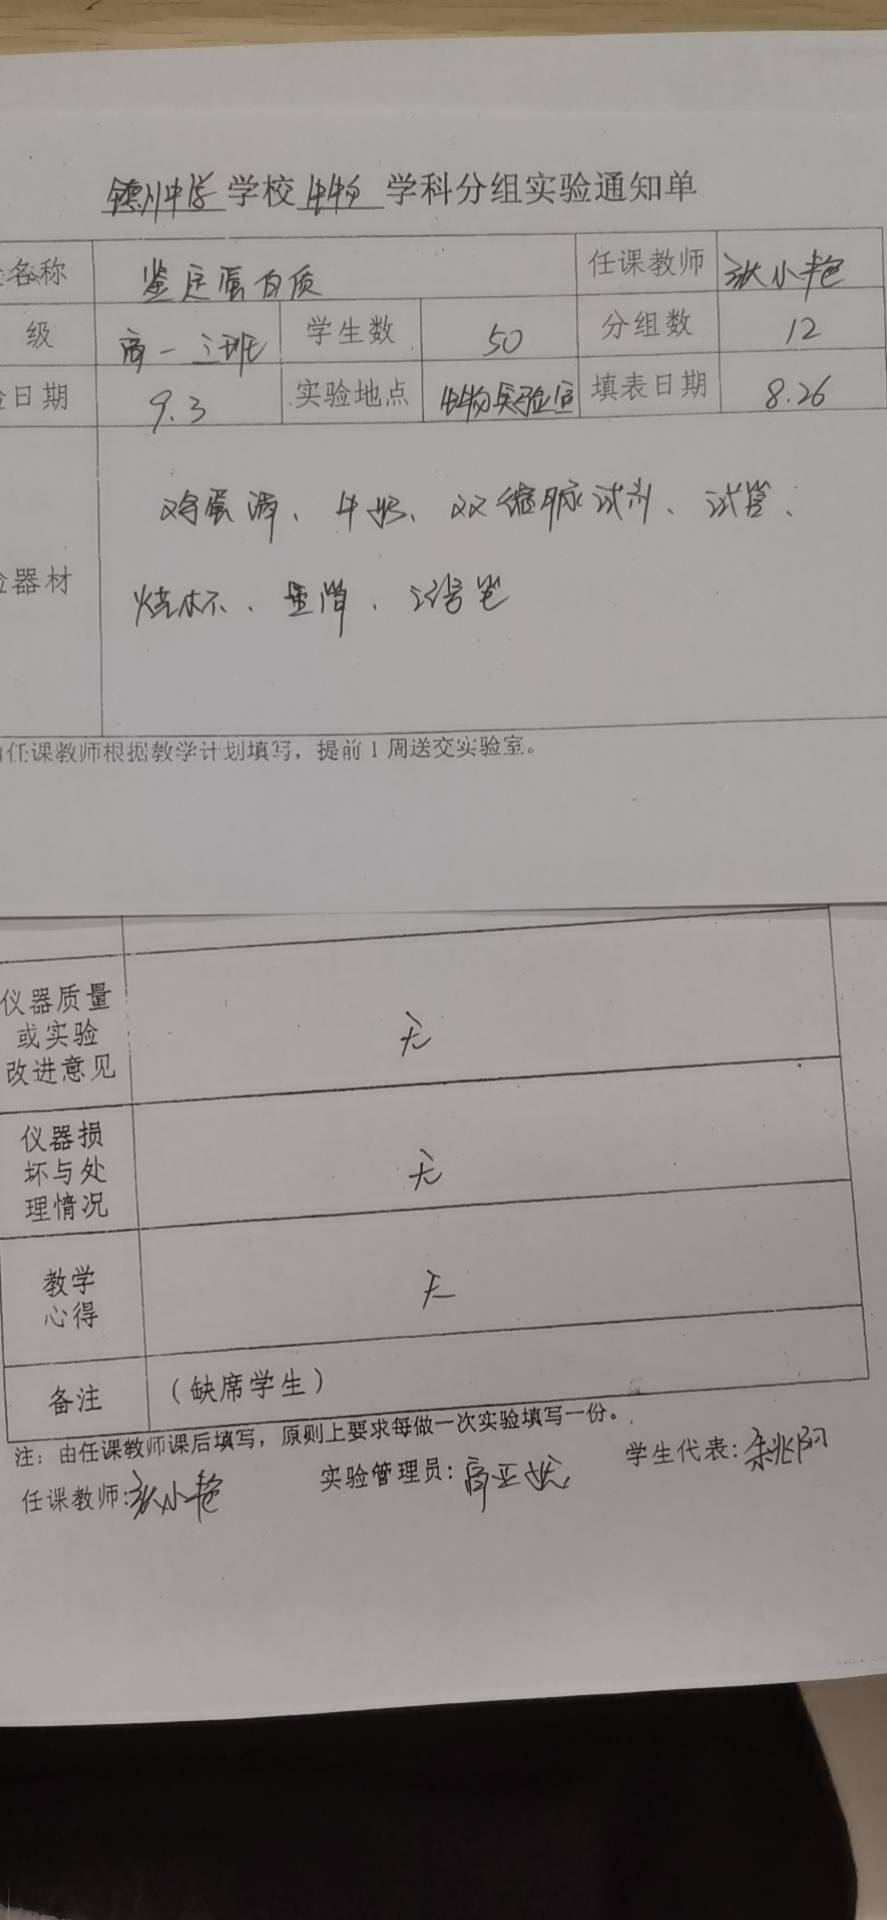 镇川中学 学校 生物 学科分组实验通知单
名称 鉴定蛋白质 任课教师 张小艳
级 高一 班 学生数 50 分组数 12
日期 9.3 实验地点 生物实验室 填表日期 8.26
鸡蛋清、牛奶、双缩脲试剂、试管、
器材
烧杯、量筒、记号笔
任课教师根据教学计划填写，提前1周送交实验室。
仪器质量
或实验
改进意见
无
仪器损
坏与处
理情况
无
教学
心得
无
备注 （缺席学生）
注：由任课教师课后填写，原则上要求每做一次实验填写一份。
任课教师：张小艳 实验管理员：高亚 学生代表：朱兆阳